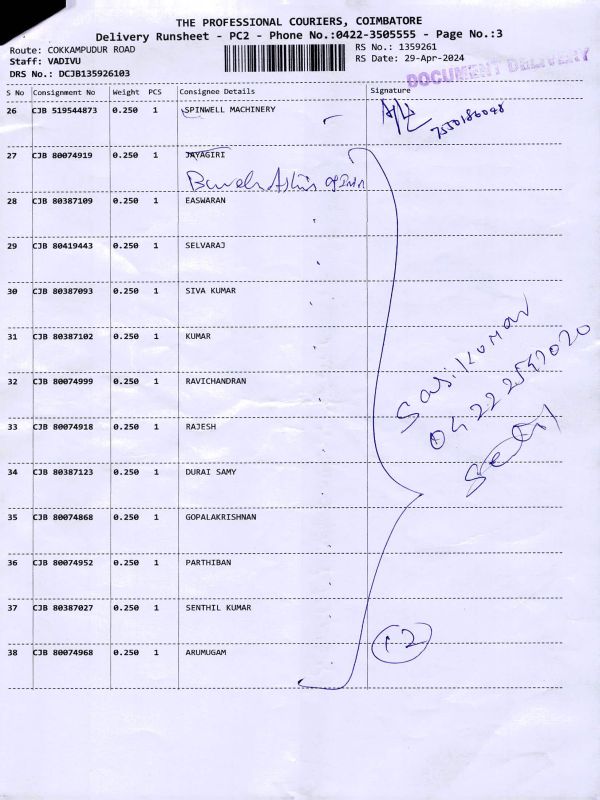 THE PROFESSIONAL COURIERS, COIMBATORE
Delivery Runsheet - PC2 - Phone No.:0422-3505555 - Page No.:3
Route: COKKAMPUDUR ROAD
Staff: VADIVU
DRS No.: DCJB135926103
RS No.: 1359261
RS Date: 29-Apr-2024
DOCUMENT DELIVERY
S No Consignment No Weight PCS Consignee Details Signature
26 CJB 519544873 0.250 1 SPINWELL MACHINERY
7550186048
27 CJB 80074919 0.250 1 JAYAGIRI
28 CJB 80387109 0.250 1 EASWARAN
29 CJB 80419443 0.250 1 SELVARAJ
30 CJB 80387093 0.250 1 SIVA KUMAR
31 CJB 80387102 0.250 1 KUMAR
32 CJB 80074999 0.250 1 RAVICHANDRAN
33 CJB 80074918 0.250 1 RAJESH
34 CJB 80387123 0.250 1 DURAI SAMY
35 CJB 80074868 0.250 1 GOPALAKRISHNAN
36 CJB 80074952 0.250 1 PARTHIBAN
37 CJB 80387027 0.250 1 SENTHIL KUMAR
38 CJB 80074968 0.250 1 ARUMUGAM
Sasikumar
12